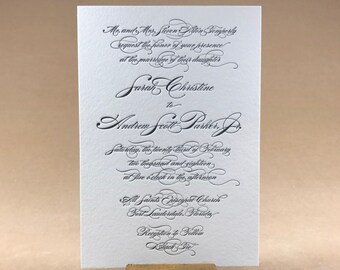 Mr. and Mrs. Steven
request the honor of your presence
at the marriage of their daughter
Sarah Christine
to
Andrew Scott Parker, Jr.
Saturday, the twenty third of February
two thousand and eighteen
at o'clock in the afternoon
All Saints Episcopal Church
Fort Lauderdale, Florida
Reception to Follow